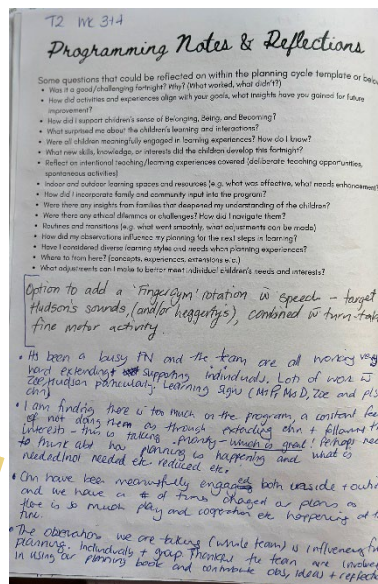 T2 WK 3+4
Programming Notes & Reflections
Some questions that could be reflected on within the planning cycle template or below
• Was it a good/challenging fortnight? Why? (What worked, what didn't?)
• How did activities and experiences align with your goals, what insights have you gained for future
improvement?
• How did I support children's sense of Belonging, Being, and Becoming?
• What surprised me about the children's learning and interactions?
• Were all children meaningfully engaged in learning experiences? How do I know?
• What new skills, knowledge, or interests did the children develop this fortnight?
• Reflect on intentional teaching/learning experiences covered (deliberate teaching opportunities,
spontaneous activities)
• Indoor and outdoor learning spaces and resources (e.g. what was effective, what needs enhancement?
• How did I incorporate family and community input into the program?
• Were there insights from families that deepened my understanding of the children?
• Were there any ethical dilemmas or challenges? How did I navigate them?
• Routines and transitions (e.g. what went smoothly, what adjustments can be made)
• How did my observations influence my planning for the next steps in learning?
• Have I considered diverse learning styles and needs when planning experiences?
• Where to from here? (concepts, experiences, extensions e.t.c.)
• What adjustments can I make to better meet individual children's needs and interests?
Option to add a 'Finger Gym' rotation w speech - target
Hudson's sounds, (and/or heggertys), combined w turn-tak
fine motor activity.
• It's been a busy FN and the team are all working very
hard extending + supporting individuals. Lots of work w
Zoe, Hudson particularly. Learning signs (Mr P, Ms D, Zoe and
chn)
• I am finding there is too much on the program, a constant fee
of not doing them as through extending chn + following th
interests - this is taking priority - which is great! Perhaps nee
to think abt how planning is happening and what is
needed/not needed etc reduced etc.
• Chn have been meaningfully engaged both inside + outsi
and we have a # of times changed our plans as
there is so much play and cooperation etc happening at t
time.
• The observations we are taking (whole team) is influencing f
planning. Individually + group. Thanks, the team are involve
in using our planning book and contribute obs, ideas + reflect